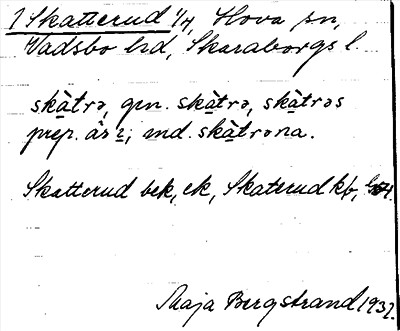 1 Skatterud 1/4, Hova sn,
Vadsbo hd, Skaraborgs l.
skàtrə, gen. skàtrə, skàtrəs
prep. i; ind. skàtrəna.
Skatterud bek, ek, Skaterud kb,
Maja Bergstrand 1937.